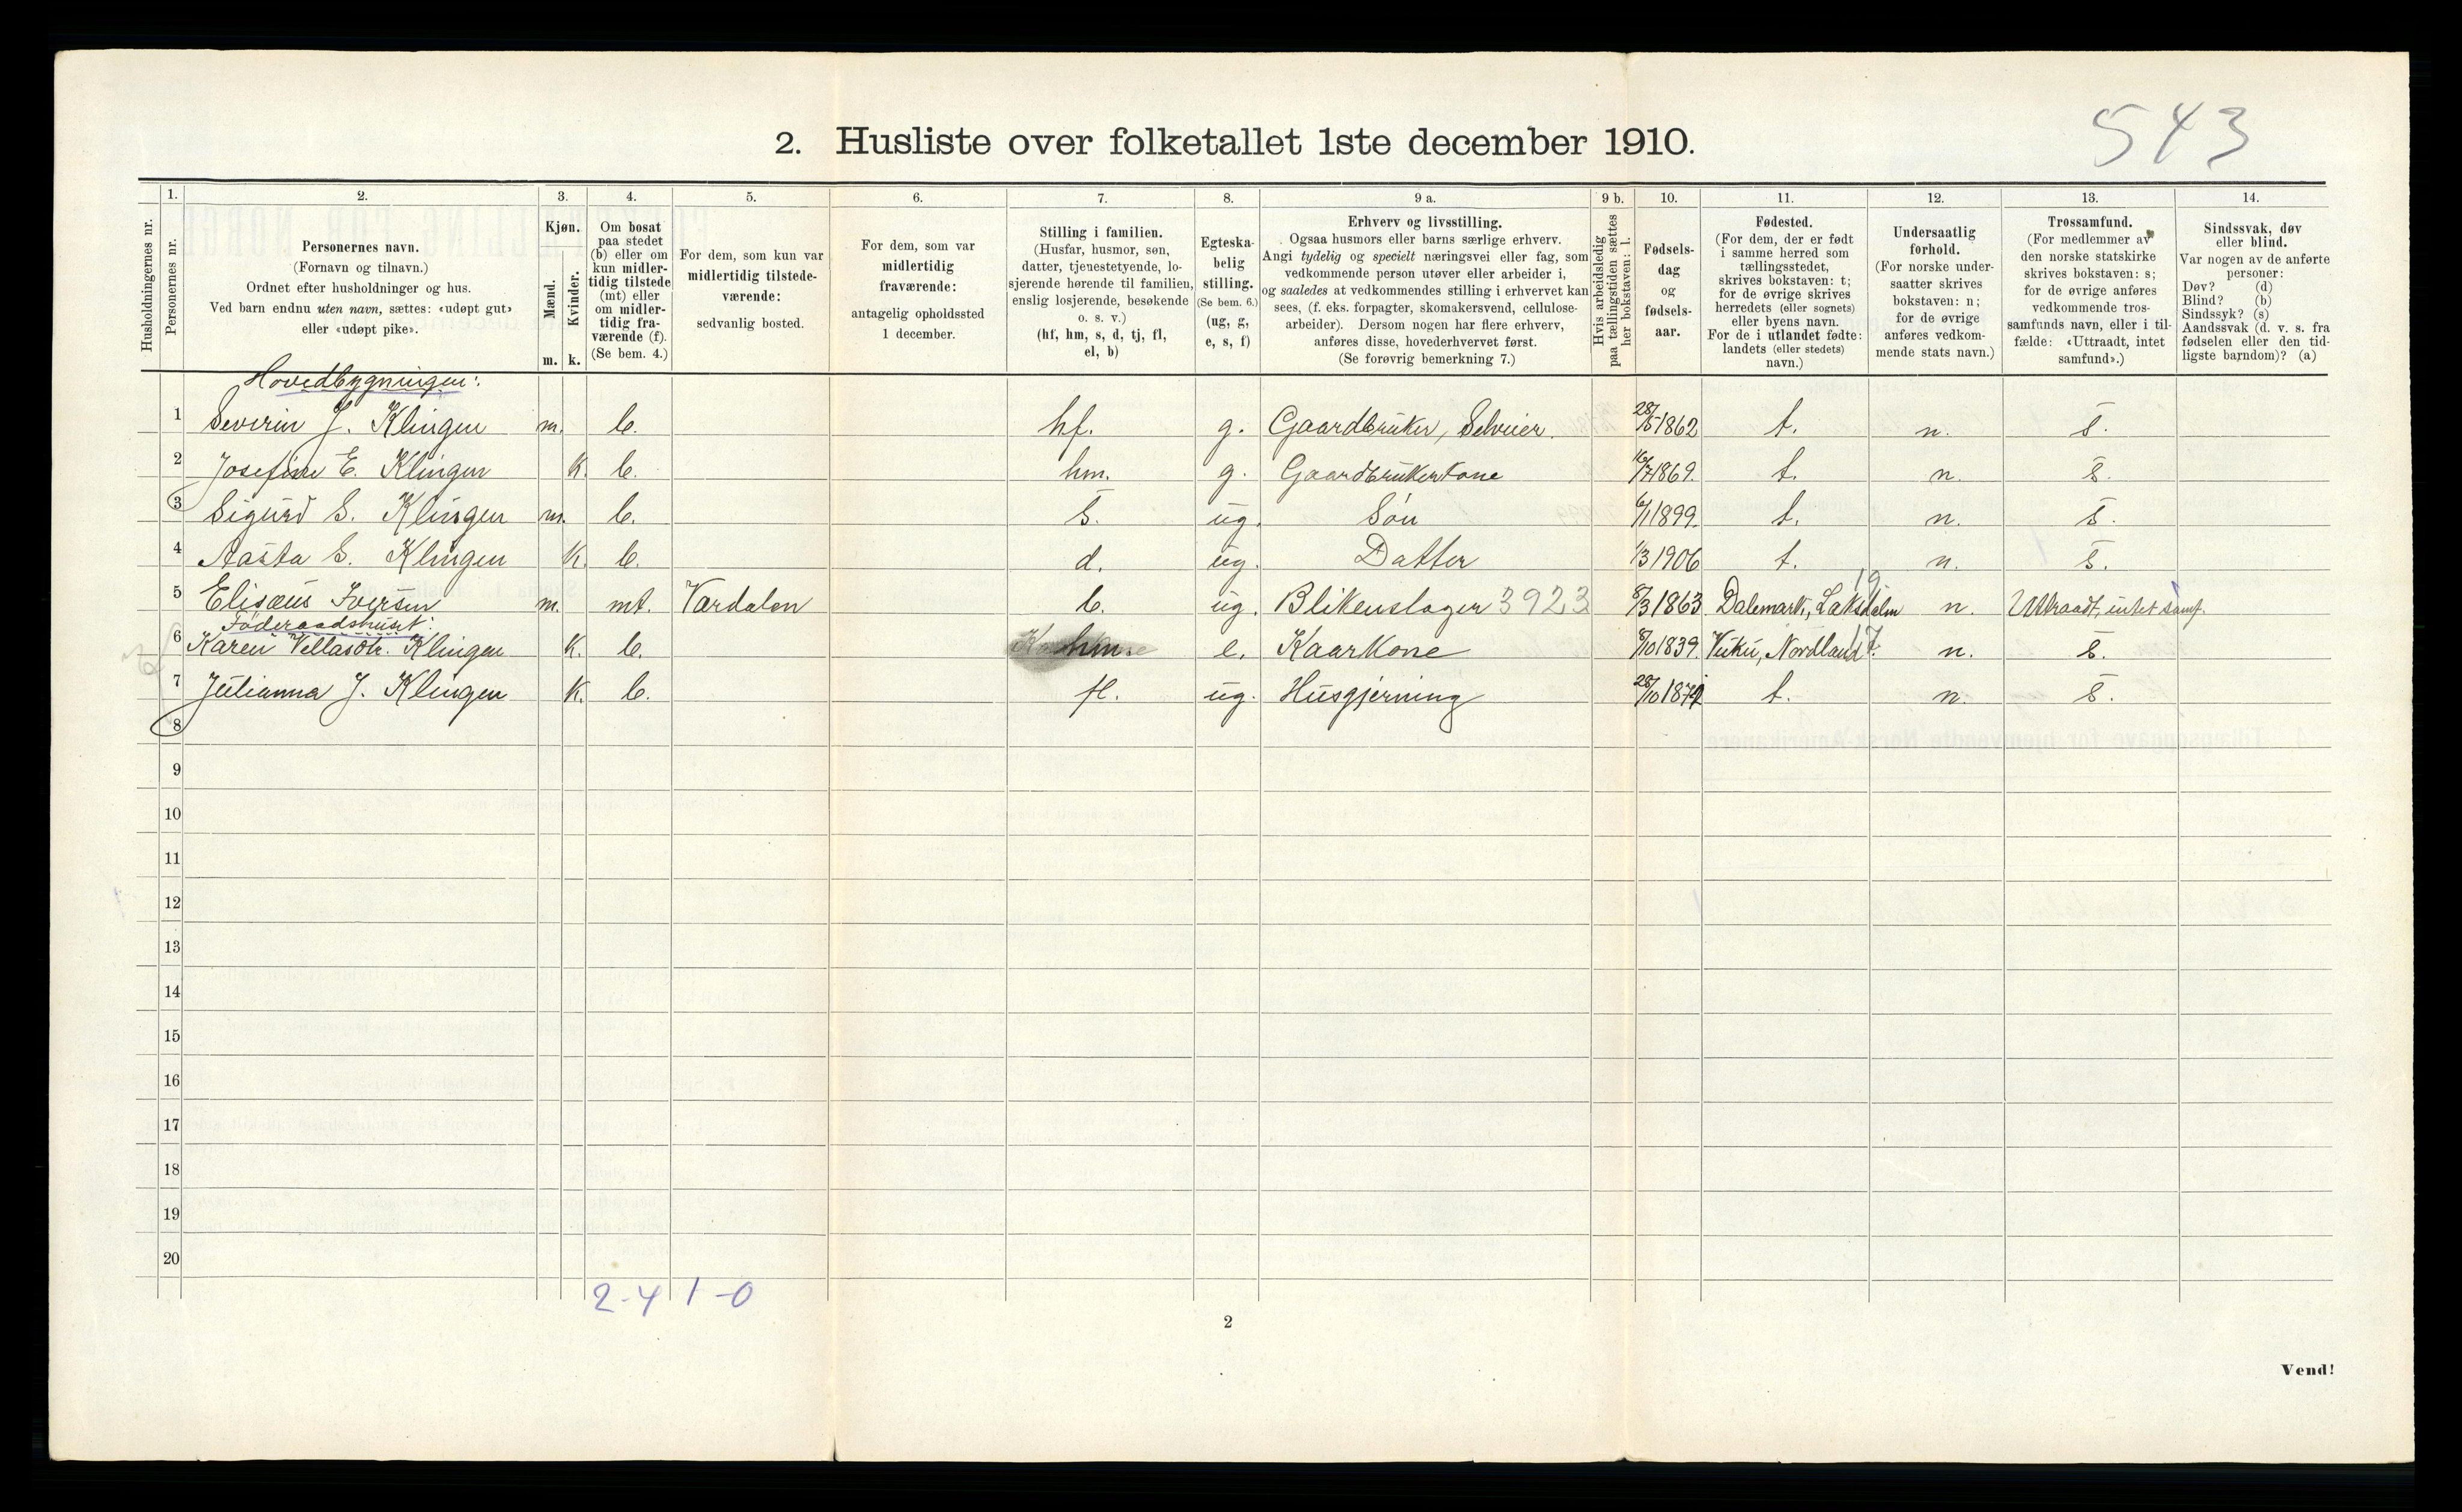 543
2. Husliste over folketallet 1ste december 1910.
Husholdningernes nr.
1. Personernes nr.
2. Personernes navn.
(Fornavn og tilnavn.)
Ordnet efter husholdninger og hus.
Ved barn endnu uten navn, sættes: «udøpt gut»
eller «udøpt pike».
3. Kjøn.
Mænd. m.
Kvinder. k.
4. Om bosat
paa stedet
(b) eller om
kun midler-
tidig tilstede
(mt) eller
om midler-
tidig fra-
værende (f).
(Se bem. 4.)
5. For dem, som kun var
midlertidig tilstede-
værende:
sedvanlig bosted.
6. For dem, som var
midlertidig
fraværende:
antagelig opholdssted
1 december.
7. Stilling i familien.
(Husfar, husmor, søn,
datter, tjenestetyende, lo-
sjerende hørende til familien,
enslig losjerende, besøkende
o. s. v.)
(hf, hm, s, d, tj, fl,
el, b)
8. Egteska-
belig
stilling.
(Se bem. 6.)
(ug, g,
e, s, f)
9 a. Erhverv og livsstilling.
Ogsaa husmors eller barns særlige erhverv.
Angi tydelig og specielt næringsvei eller fag, som
vedkommende person utøver eller arbeider i,
og saaledes at vedkommendes stilling i erhvervet kan
sees, (f. eks. forpagter, skomakersvend, cellulose-
arbeider). Dersom nogen har flere erhverv,
anføres disse, hovederhvervet først.
(Se forøvrig bemerkning 7.)
9 b. Hvis arbeidsledig
paa tællingstiden sættes
her bokstaven: l.
10. Fødsels-
dag
og
fødsels-
aar.
11. Fødested.
(For dem, der er født
i samme herred som
tællingsstedet,
skrives bokstaven: t;
for de øvrige skrives
herredets (eller sognets)
eller byens navn.
For de i utlandet fødte:
landets (eller stedets)
navn.)
12. Undersaatlig
forhold.
(For norske under-
saatter skrives
bokstaven: n;
for de øvrige
anføres vedkom-
mende stats navn.)
13. Trossamfund.
(For medlemmer av
den norske statskirke
skrives bokstaven: s;
for de øvrige anføres
vedkommende tros-
samfunds navn, eller i til-
fælde: «Uttraadt, intet
samfund».)
14. Sindssvak, døv
eller blind.
Var nogen av de anførte
personer:
Døv? (d)
Blind? (b)
Sindssyk? (s)
Aandssvak (d. v. s. fra
fødselen eller den tid-
ligste barndom)? (a)
Hovedbygningen:
1 Severin J. Klingen m. b. hf. g. Gaardbruker, Selveier. 28/5 1862 t. n. s.
2 Josefine E. Klingen k. b. hm. g. Gaardbrukerkone 16/7 1869. t. n. s.
3 Sigurd S. Klingen m. b. s. ug. Søn 6/1 1899. t. n. s.
4 Aasta S. Klingen k. b. d. ug. Datter 1/3 1906 t. n. s.
5 Elisæus Iversen m. mt. Værdalen b. ug. Blikenslager 3923 8/3 1863 Dalemark, n. Uttraadt, intet samf.
19
Føderaadshuset:
6 Karen Klingen k. b. hm. e. Kaarkone 8/10 1839. Vuku, Nordland 17. n. s.
7 Julianna J. Klingen k. b. fl. ug. Husgjerning 28/10 t. n. s.
8
9
10
11
12
13
14
15
16
17
18
19
20
2-4 1-0
2
Vend!